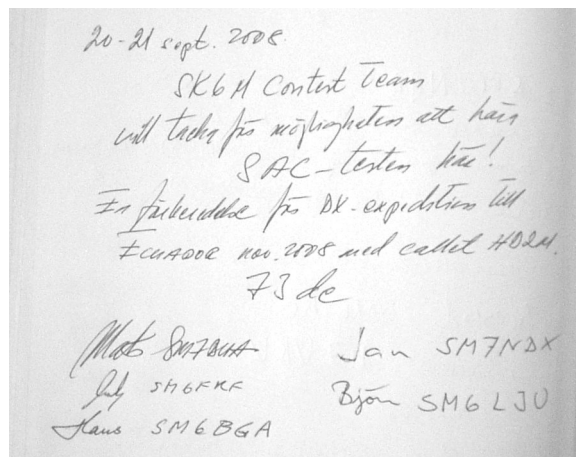 20-21 sept. 2008.
SK6M Contest Team
vill tacka för möjligheten att köra
SAC-testen här!
En förberedelse för DX-expedition till
ECUADOR nov. 2008 med callet HD2M.
73 de
Mats SM7DXA
Jan SM7NDX
SM6FKF
Björn SM6LJU
Hans SM6BGA